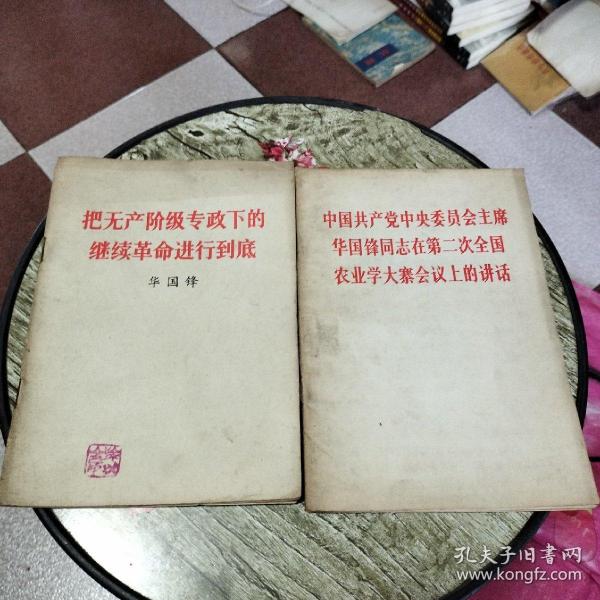 把无产阶级专政下的
继续革命进行到底
华国锋
中国共产党中央委员会主席
华国锋同志在第二次全国
农业学大寨会议上的讲话
孔夫子旧書网
www.kongfz.com